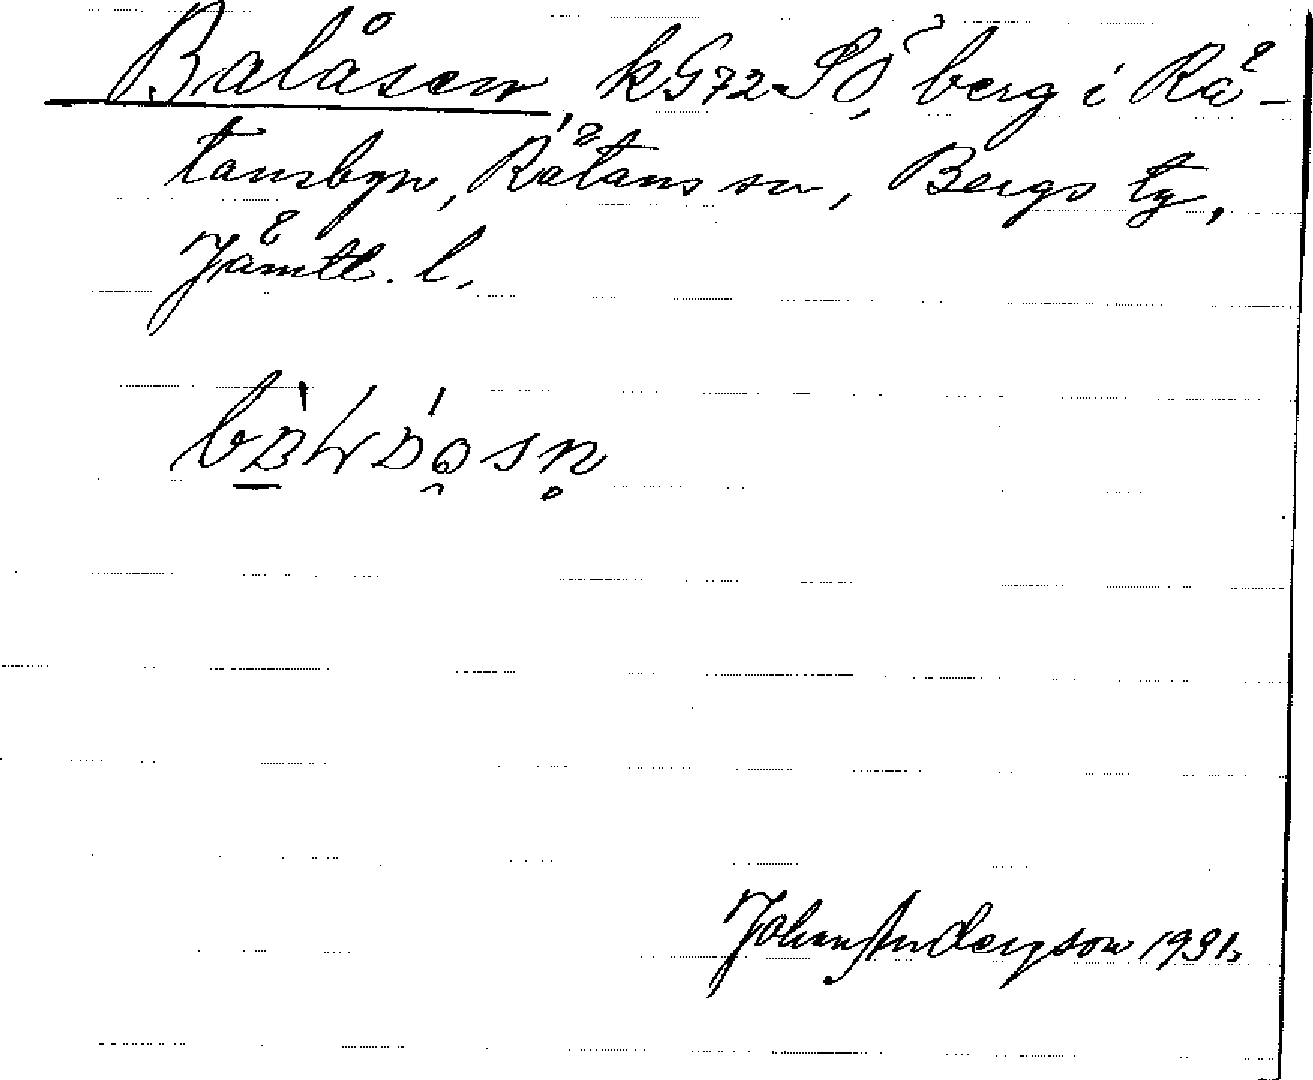 Balåsen, kG72SÖ, berg i Rå-
tansbyn, Rätans sn, Bergs tg,
Jämtl. l.
Johan Anderzson 1931.